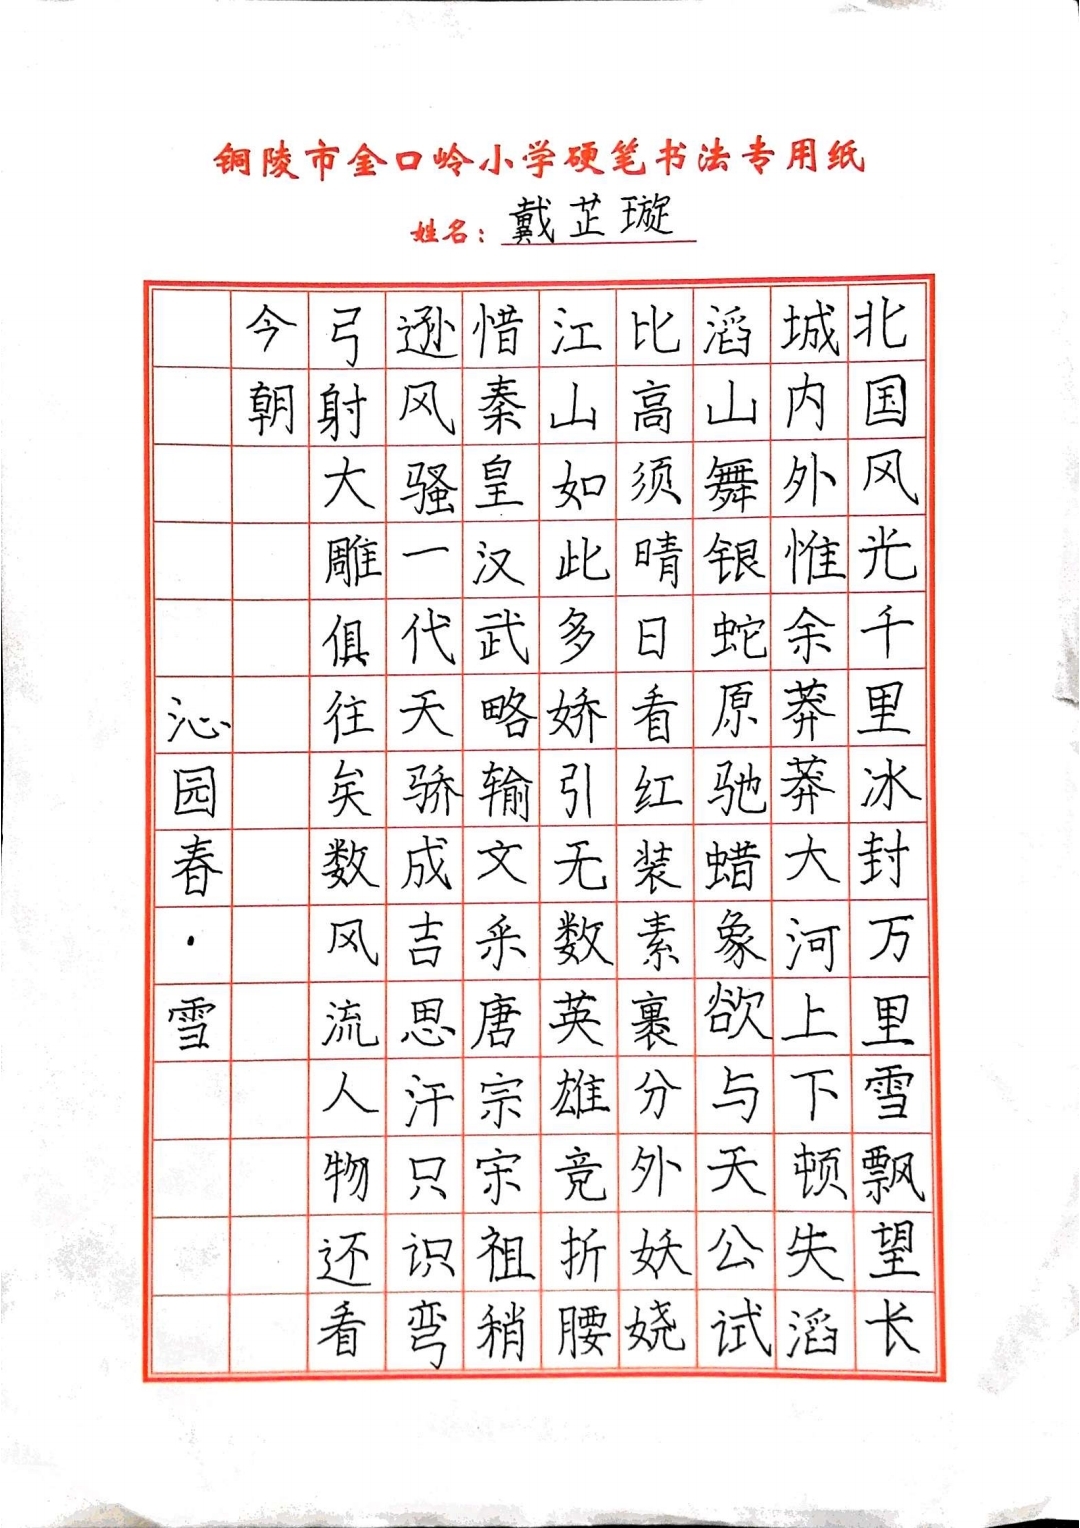 铜陵市金口岭小学硬笔书法专用纸
姓名：戴芷璇
北国风光千里冰封万里雪飘望长
城内外惟余莽莽大河上下顿失滔
滔山舞银蛇原驰蜡象欲与天公试
比高须晴日看红装素裹分外妖娆
江山如此多娇引无数英雄竞折腰
惜秦皇汉武略输文采唐宗宋祖稍
逊风骚一代天骄成吉思汗只识弯
弓射大雕俱往矣数风流人物还看
今朝
沁园春·雪